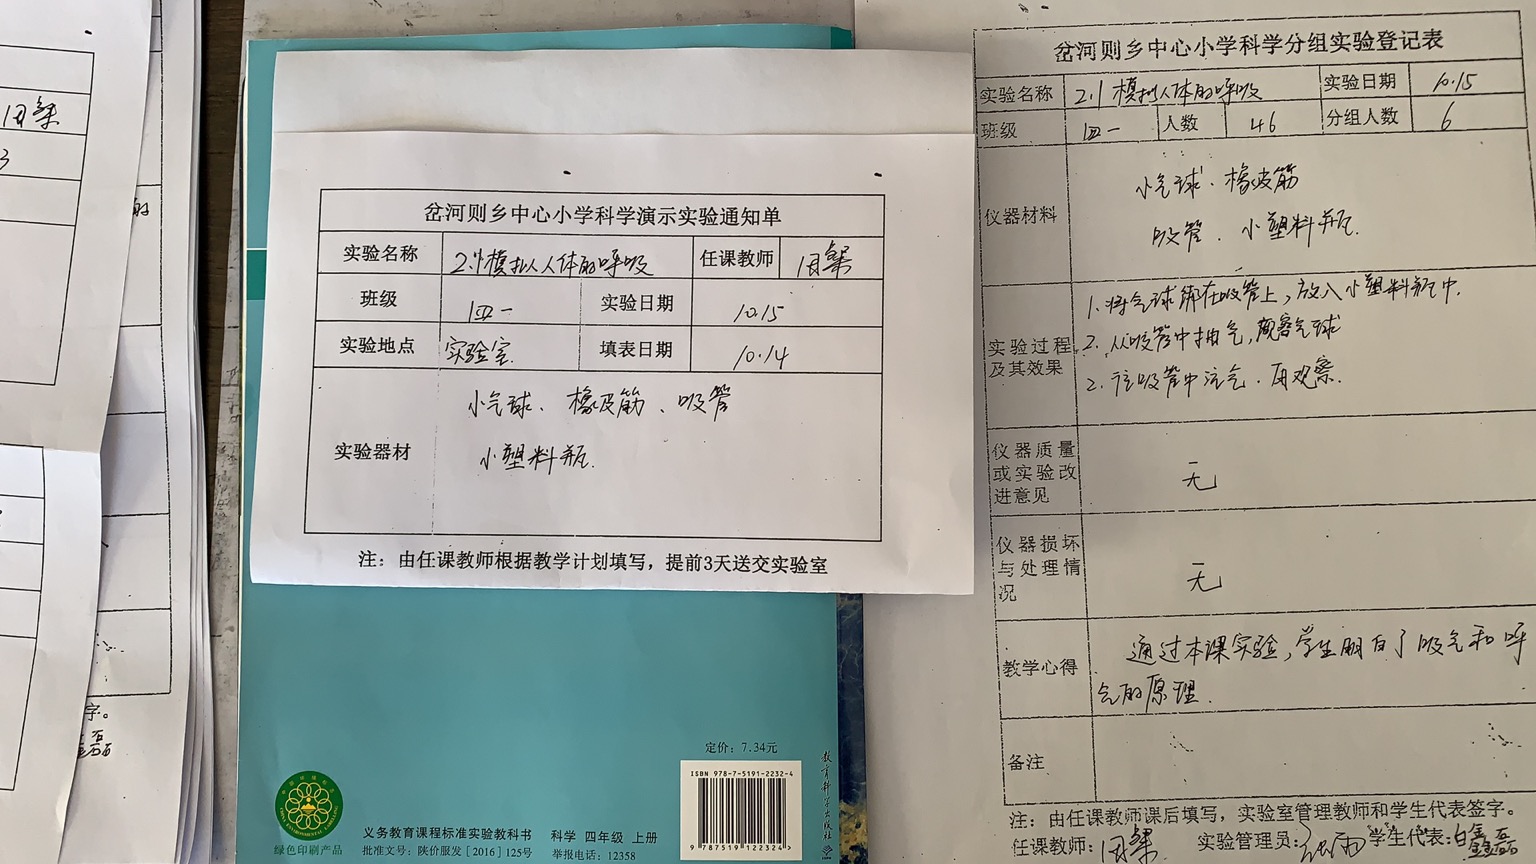 岔河则乡中心小学科学演示实验通知单
实验名称 2.1模拟人体的呼吸 任课教师
班级 四一 实验日期 10.15
实验地点 实验室 填表日期 10.14
实验器材
小气球、橡皮筋、吸管
小塑料瓶.
注：由任课教师根据教学计划填写，提前3天送交实验室
定价：7.34元
ISBN 978-7-5191-2232-4
9 787519 122324 >
教育科学出版社
绿色印刷产品
义务教育课程标准实验教科书 科学 四年级 上册
批准文号：陕价服发［2016］125号 举报电话：12358
岔河则乡中心小学科学分组实验登记表
实验名称 2.1 模拟人体的呼吸 实验日期 10.15
班级 四一 人数 46 分组人数 6
仪器材料
小气球、橡皮筋
吸管、小塑料瓶.
实验过程及其效果
1.将气球绑在吸管上，放入小塑料瓶中.
2.从吸管中抽气，观察气球
2.往吸管中注气.再观察.
仪器质量
或实验改
进意见
无
仪器损坏
与处理情
况
无
教学心得
通过本课实验，学生明白了吸气和呼
气的原理.
备注
注：由任课教师课后填写，实验室管理教师和学生代表签字。
任课教师： 实验管理员： 学生代表:白鑫磊
字。